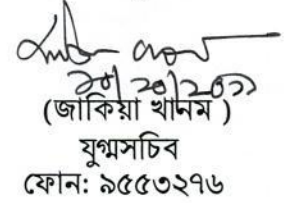 (জাকিয়া খানম )
যুগ্মসচিব
ফোন: ৯৫৫৩২৭৬